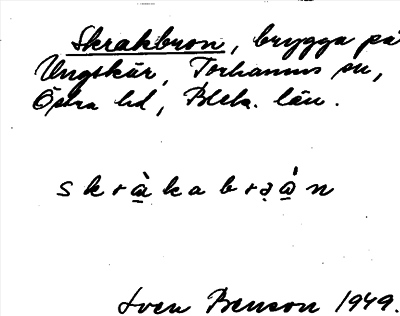 Skrakbron, brygga på
Ungskär, Torhamns sn,
Östra hd, Blek. län.
skràkabrǝån
Sven Benson 1949.